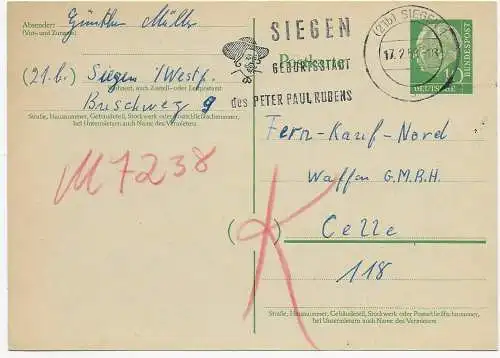 Absender: Günther Müller
(Vor- und Zuname)
(21.b.) Siegen i/Westf.
Wohnort, auch Zustell- oder Leitpostamt
Buschweg 9
Straße, Hausnummer, Gebäudeteil, Stockwerk oder Postschließfachnummer,
bei Untermietern auch Name des Vermieters
SIEGEN
GEBURTSSTADT
des PETER PAUL RUBENS
Postkarte
(21b) SIEGEN
17.2.
DEUTSCHE
BUNDESPOST
M 7238
Fern-Kauf-Nord
Waffen G.M.B.H.
( ) Celle
K
118
Straße, Hausnummer, Gebäudeteil, Stockwerk oder Postschließfachnummer,
bei Untermietern auch Name des Vermieters